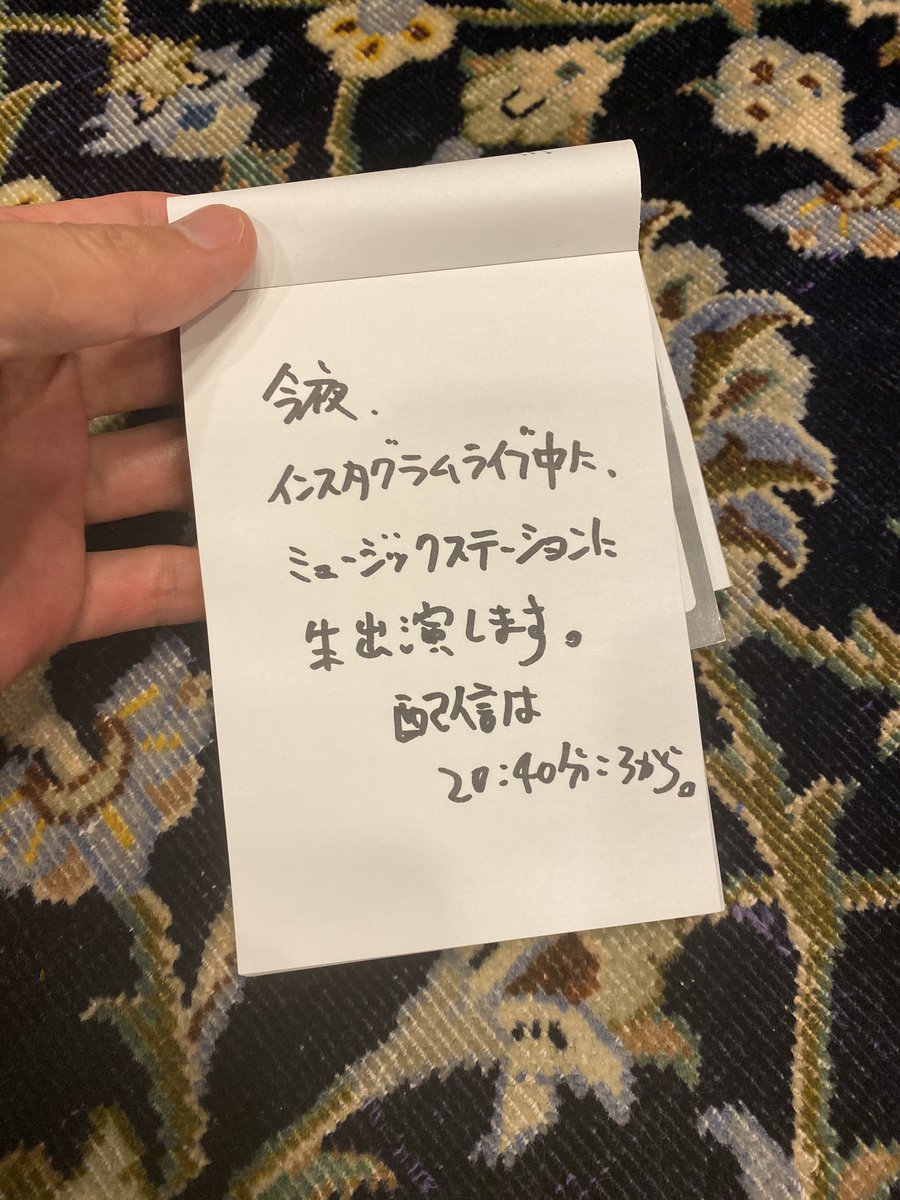 今夜、
インスタグラムライブ中に、
ミュージックステーションに
生出演します。
配信は
20:40分ごろから。